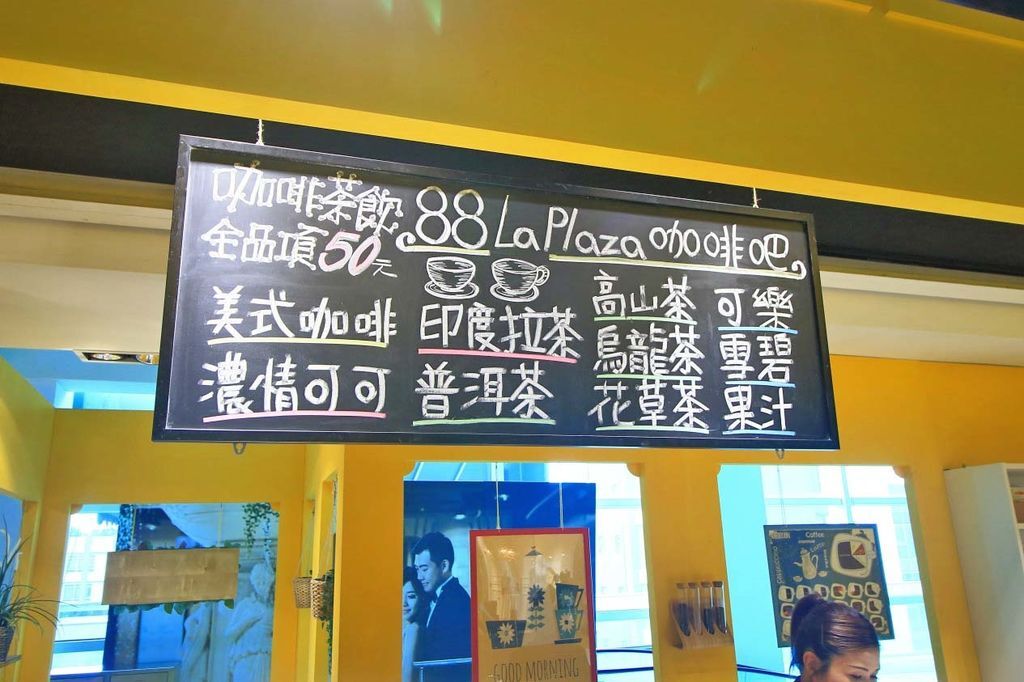 咖啡茶飲
全品項50元
88 La Plaza 咖啡吧
美式咖啡
濃情可可
印度拉茶
普洱茶
高山茶
烏龍茶
花草茶
可樂
雪碧
果汁
GOOD MORNING
Coffee